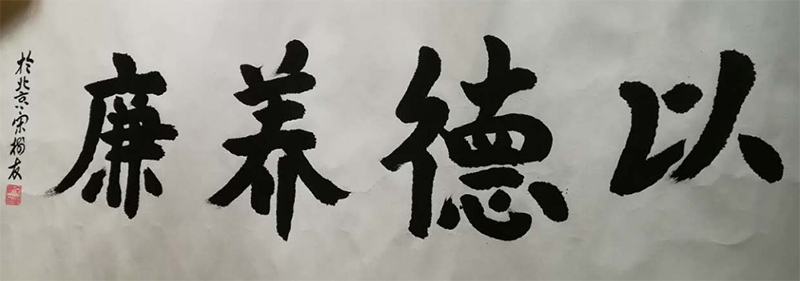 以德养廉
于北京宋树友